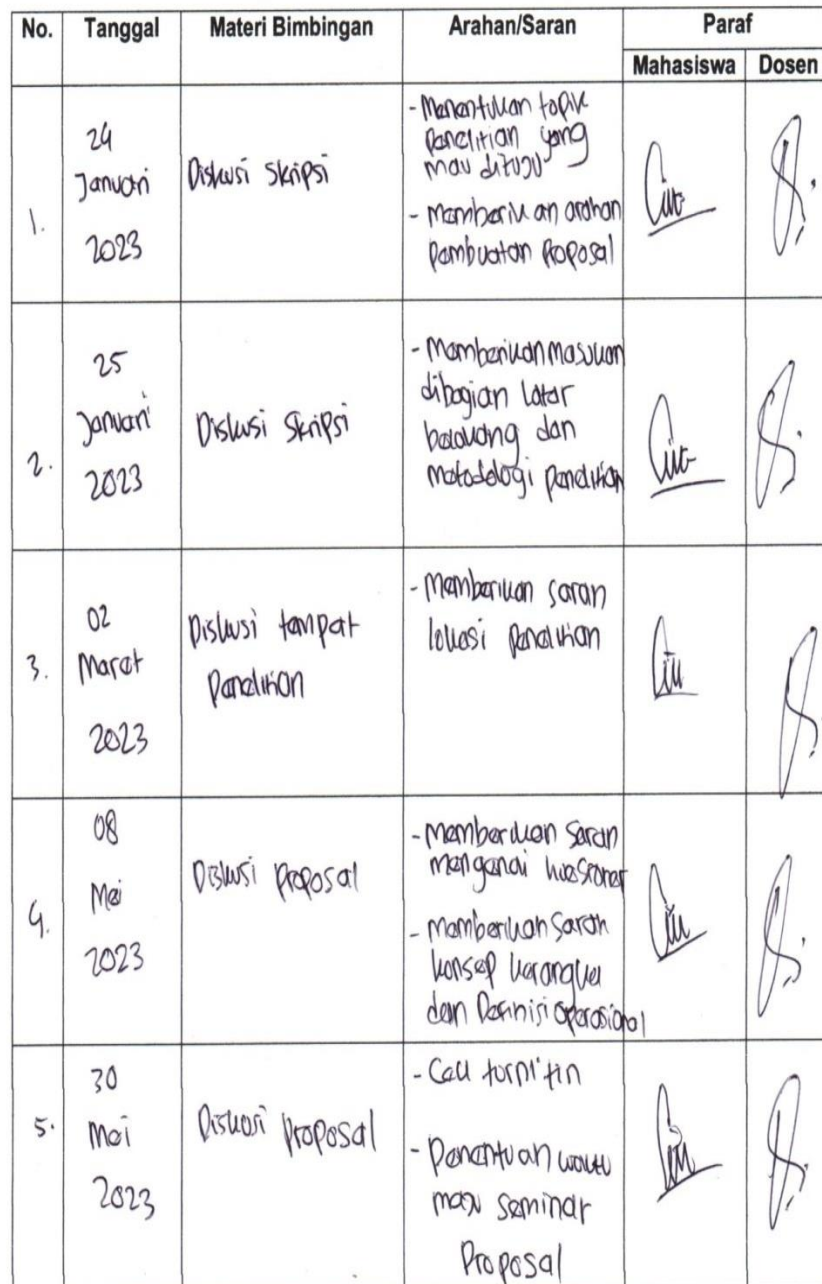 No. Tanggal Materi Bimbingan Arahan/Saran Paraf
Mahasiswa Dosen
1.
24
Januari
2023
Diskusi Skripsi
- Menentukan topik
penelitian yang
mau dituju
- Memberikan arahan
pembuatan Proposal
2.
25
Januari
2023
Diskusi Skripsi
- Memberikan masukan
dibagian latar
belakang dan
metodologi penelitian
3.
02
Maret
2023
Diskusi tempat
Penelitian
- Memberikan saran
lokasi penelitian
4.
08
Mei
2023
Diskusi Proposal
- Memberikan saran
mengenai kuesioner
- Memberikan saran
konsep kerangka
dan Definisi operasional
5.
30
Mei
2023
Diskusi Proposal
- Cek turnitin
- Penentuan waktu
maju seminar
Proposal